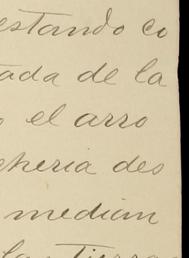 estando co
tada de la
o el arro
cheria des
median
las Tierra